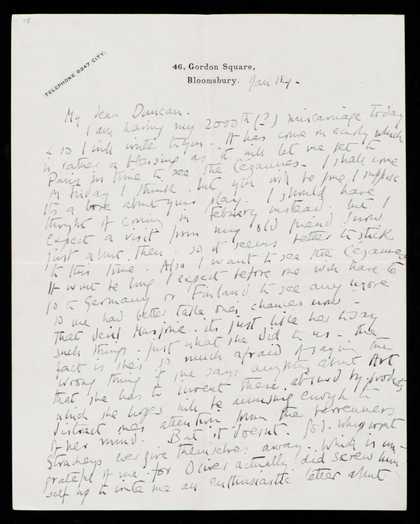 TELEPHONE 8047 CITY.
46, Gordon Square,
Bloomsbury. Jan 14
My dear Duncan.
I am having my 2000th (?) miscarriage today
& so I will write to you. It has come on early which
is rather a blessing as it will let me get to
Paris in time to see the Cézannes. I shall come
on Friday I think. but you will be gone I suppose
Its a bore about your play. I should have
thought of coming in February instead, but I
expect a visit from my old friend now
just about then. so it seems better to stick
to this time. Also I want to see the Cézannes
It wont be long I expect before one will have to
go to Germany or Finland to see any more
so one had better take one's chances now.
That devil Marjorie. its just like her to say
such things. just what she did to us. The
fact is she's so much afraid of saying the
wrong thing if she says anything about Art
that she has to invent these absurd by products
which she hopes will be amusing enough to
distract one's attention from the barrenness
of her mind. But it doesn't. Poor
Stracheys we give themselves away. Which is un-
grateful of me. for Oliver actually did screw him-
self up to write me an enthusiastic letter about